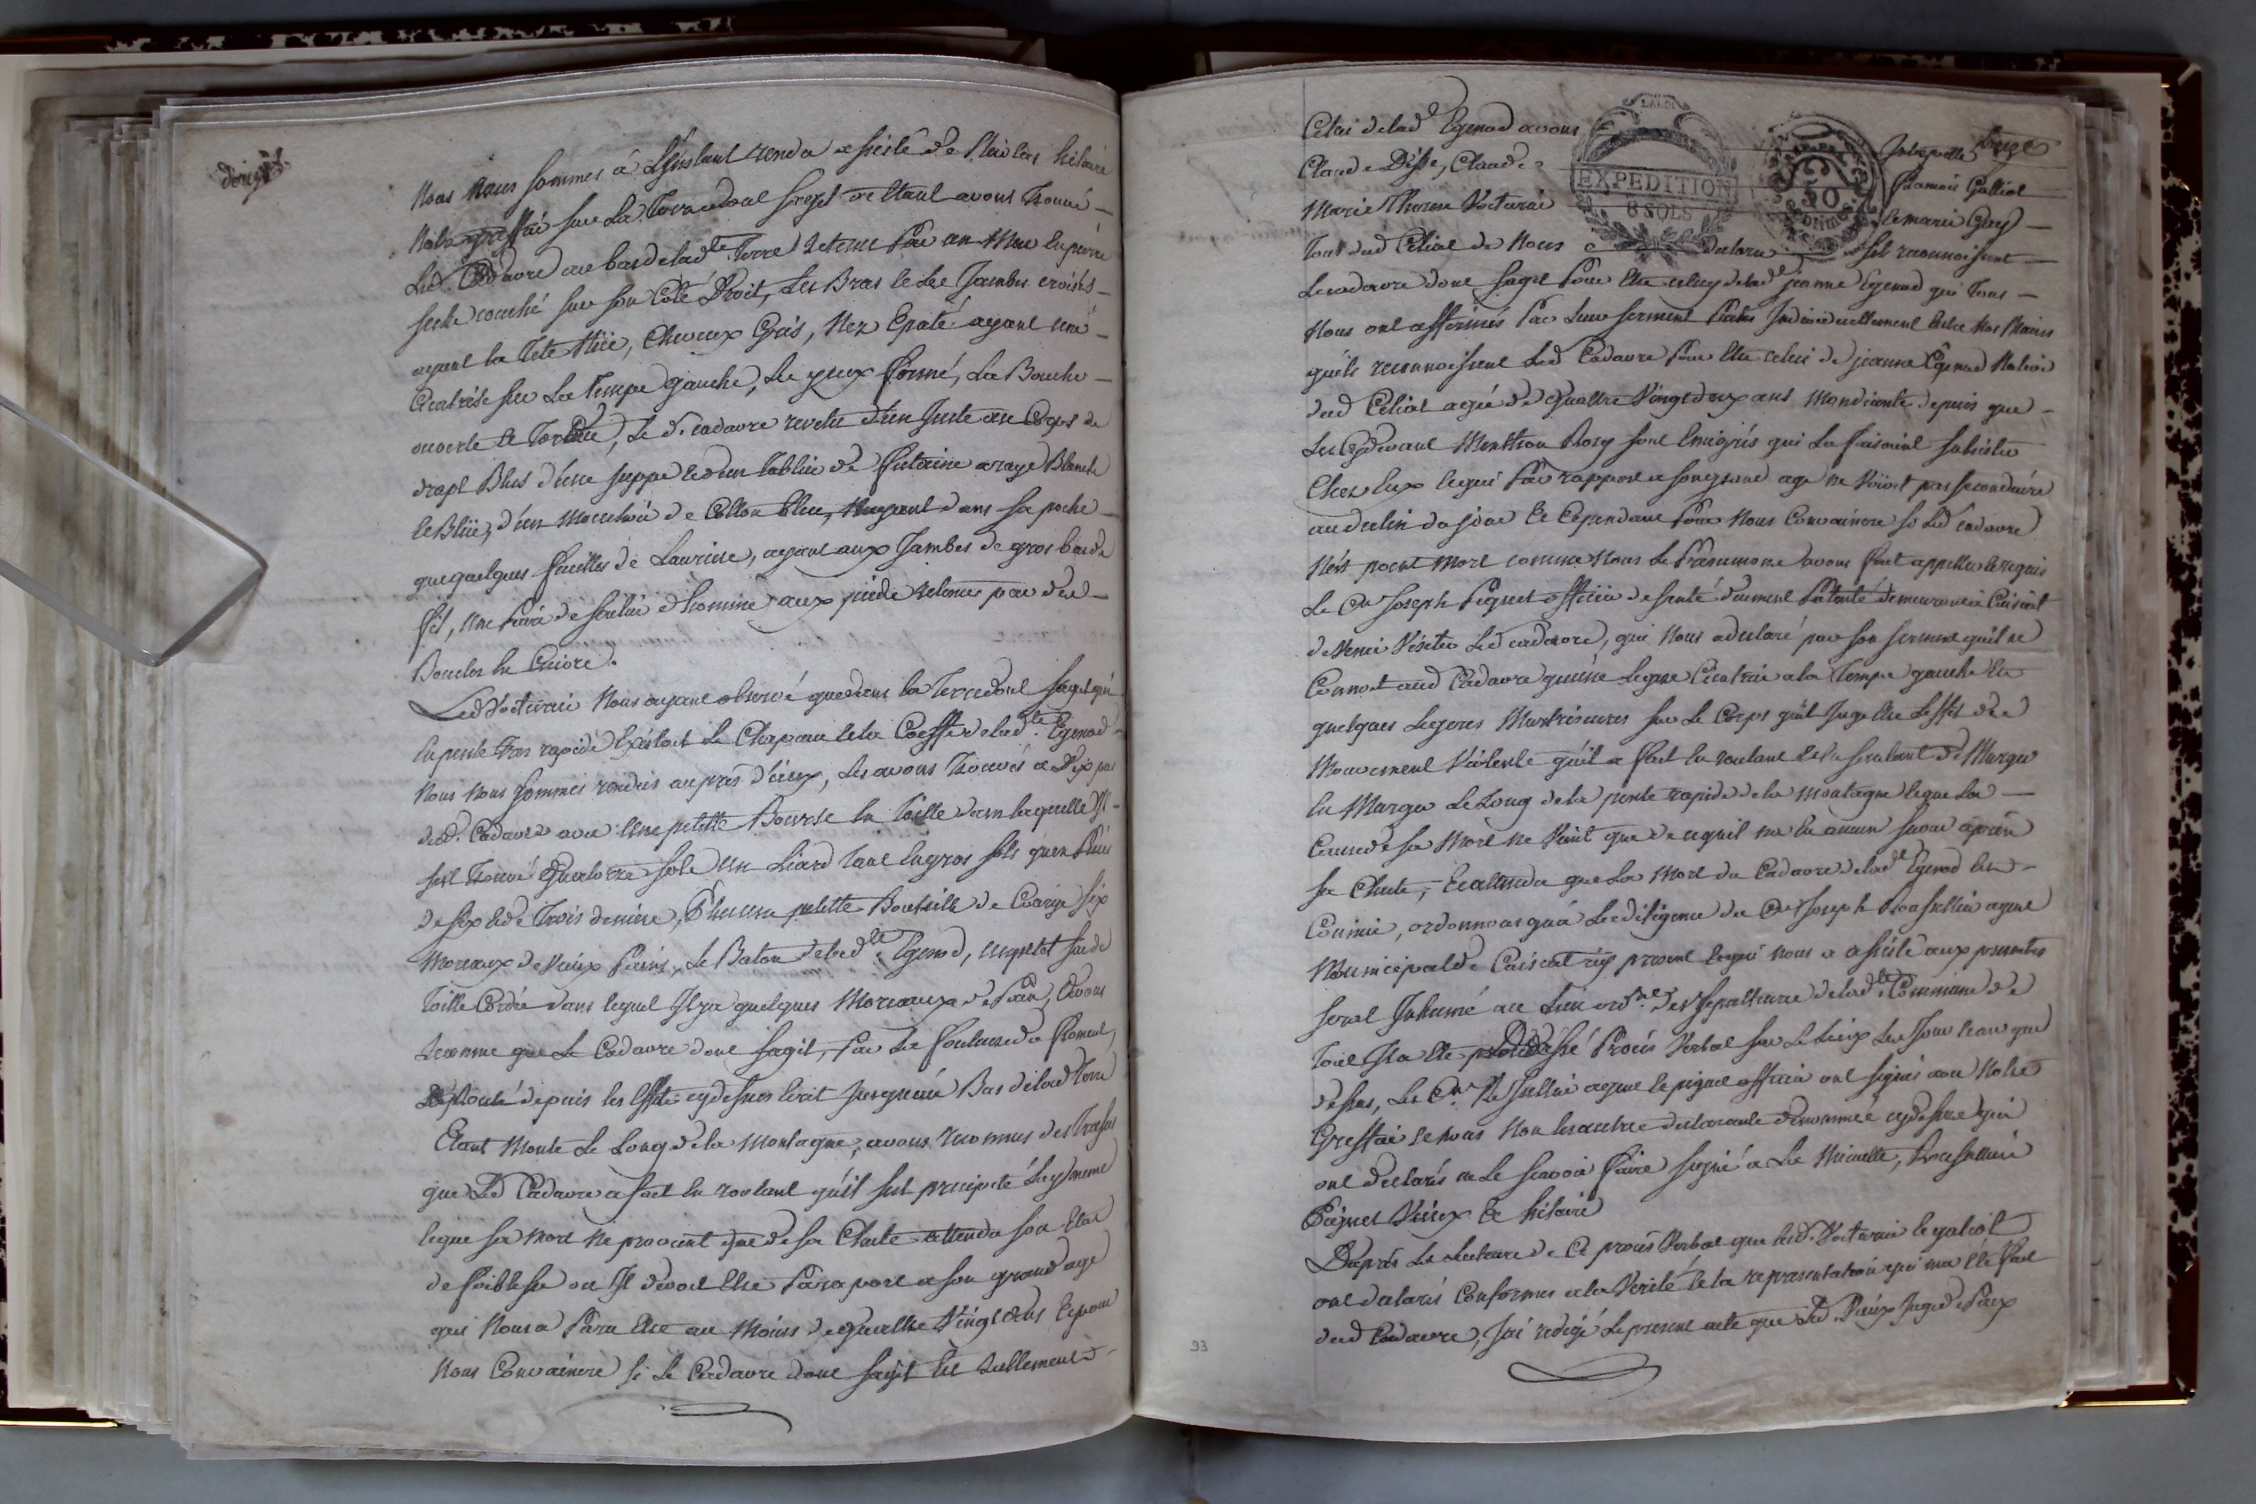 Nous Nous sommes à L'instant rendu assisté de Nicolas hilaire
Notre greffié sur La Terre dont s'agit ou Etant avons Trouvé
Led. Cadavre au bas de lad.te Terre retenu Par un Mur En pierre
seche couché sur son Coté Droit, Les Bras et les Jambes croisés
ayant la Tete Nüe, Cheveux Gris, Nez Epaté ayant une
Cicatrise sur La Tempe gauche, Les yeux fermé, La Bouche
ouverte et Tordue, Le d. cadavre revetu d'un Juste au Corps de
drapt Bleu d'une juppe et d'un tablier de futaine a raye Blanche
et Blüe, d'un Mouchoir de Cotton bleu, N'ayant dans sa poche
que quelques feuilles de Lauriere, ayant aux Jambes de gros bas de
fil, une Paire de soulié d'homme aux pieds retenus par des
Boucles En Cuivre.
Led Voiturié Nous ayant observé que dans la Terre dont s'agit qui
En pente Tres rapide Existoit Le Chapeau et la Coeffe de lad.te Egenod
Nous nous sommes rendus auprès d'iceux, Les avons Trouvés a Dix pas
dud. Cadavre avec Une petitte Bourse En Toille dans laquelle Il
s'est Trouvé Quatorze sols un Liard Tant En gros sols qu'en Pieces
de six et de Trois deniers, Plus une petitte Bouteille de Courge six
Morceaux de Vieux Pains, Le Baton de lad.te Egenod, un petit sac de
Toille Cordée dans lequel Il y a quelques Morceaux de Pain, Avons
reconnu que Le Cadavre dont s'agit, Par La foulure du froment,
depuis les Effets cy dessus Ecrit Jusques au Bas de lad Terre
Etant Monté Le Long de la Montagne, avons reconnus des Traces
que Led Cadavre a fait En roulant qu'il s'est précipité Luy même
et que sa mort ne provient que de sa Chute attendu son Etat
de foiblesse ou Il devoit Etre Par raport a son grand age
qui Nous a Paru Etre au Moins de Quattre Vingt ans Et pour
Nous Convaincre si Le Cadavre dont s'agit Est reellement
Celui de lad.e Egenod avons
Claude Claude
Marie Therese Voiturié
Tous dud Celiat de Nous
EXPEDITION
8 SOLS
50
centimes
Galliot
reconnoissent
Le cadavre dont s'agit Pour Etre celuy de lad.e jeanne Egenod qui Tous
Nous ont affirmés Par Leur serment Prétés Individuellement Entre Nos Mains
qu'ils reconnoissent Led Cadavre Pour Etre celui de jeanne Egenod Native
dud Celiat agée de Quattre Vingt deux ans Mondiante depuis que
Les Cydevant Menthon Rosy sont Emigrés qui La faisoient subsister
Chez Eux Lequi Par rapport a son grand age ne
au declin du jour Et Cependant Pour Nous Convaincre si Led cadavre
N'est point Mort comme Nous Le Presumons avons fait appeller et requis
Le Cn Joseph Piquet officier de santé duement Patenté demeurant à Cuisiat
de Venir Visiter Led cadavre, qui Nous a declaré par son serment qu'il ne
Connoit aud Cadavre qu'une Legere Cicatrice a la Tempe gauche Et
quelques Legeres Murtrisures sur Le Corps qu'il Juge Etre L'effet de
Mouvement Violente qu'il a fait En roulant Et En sautant de Murger
En Murger Le Long de la pente rapide de la montagne et que La
Cause de sa Mort ne Vient que de ce qu'il n'a Eu aucun secour après
sa Chute, Et attendu que La Mort du Cadavre de lad.e Egenod Est
Connüe, ordonnons qu'à La diligence du Cn Joseph Rousselin agent
Municipal de Cuisiat icy present Lequi nous a assisté aux presentes
serat Inhumé au Lieu ord.re des sepultures de lad.te Commune de
Tout Il a Eté dressé Procés Verbal sur Le Lieux Les Jour et an que
dessus, Les Cn agent et piquet officier ont signés avec Notre
Greffié et nous Non Les autres declarants denommés cy dessus qui
ont declarés ne Le scavoir faire signé a La Minutte, Rousselin
Piquet Vieux Et hilaire
D'après La Lecture de Ce procés Verbal que led. Voiturié et galiot
ont declarés Conformes a la Verité et la representation qui m'a Eté fait
dud Cadavre, J'ai redigé Le present acte que Led. Vieux Juge de Paix
93